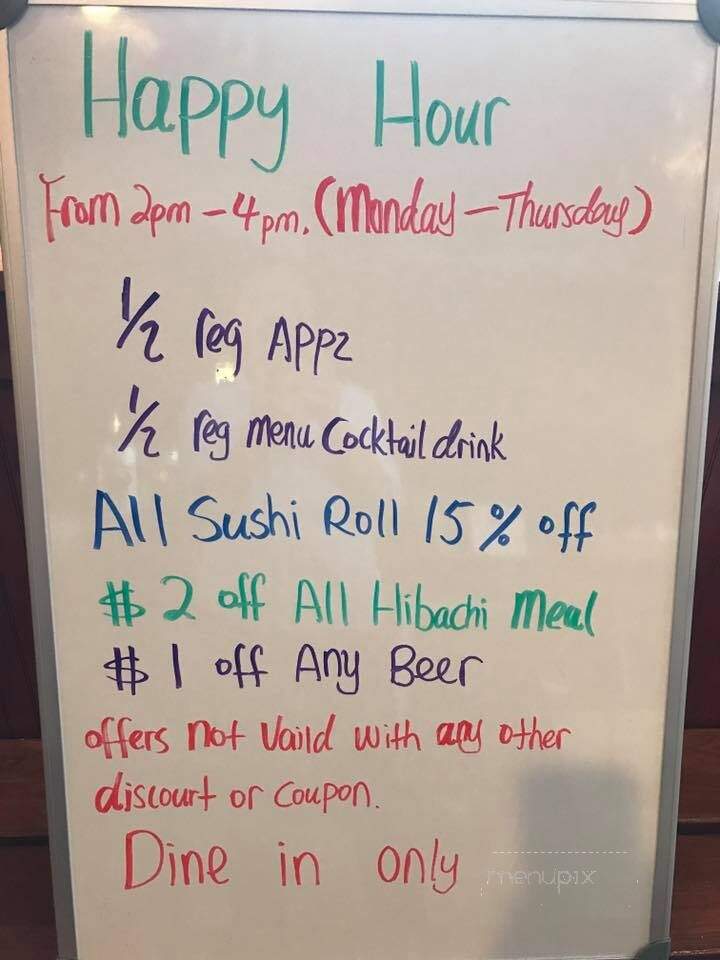 Happy Hour
From 2pm - 4pm. (Monday - Thursday)
1/2 reg Appz
1/2 reg menu Cocktail drink
All Sushi Roll 15% off
$2 off All Hibachi Meal
$1 off Any Beer
offers not Vaild with any other
discourt or coupon.
Dine in only
menupix